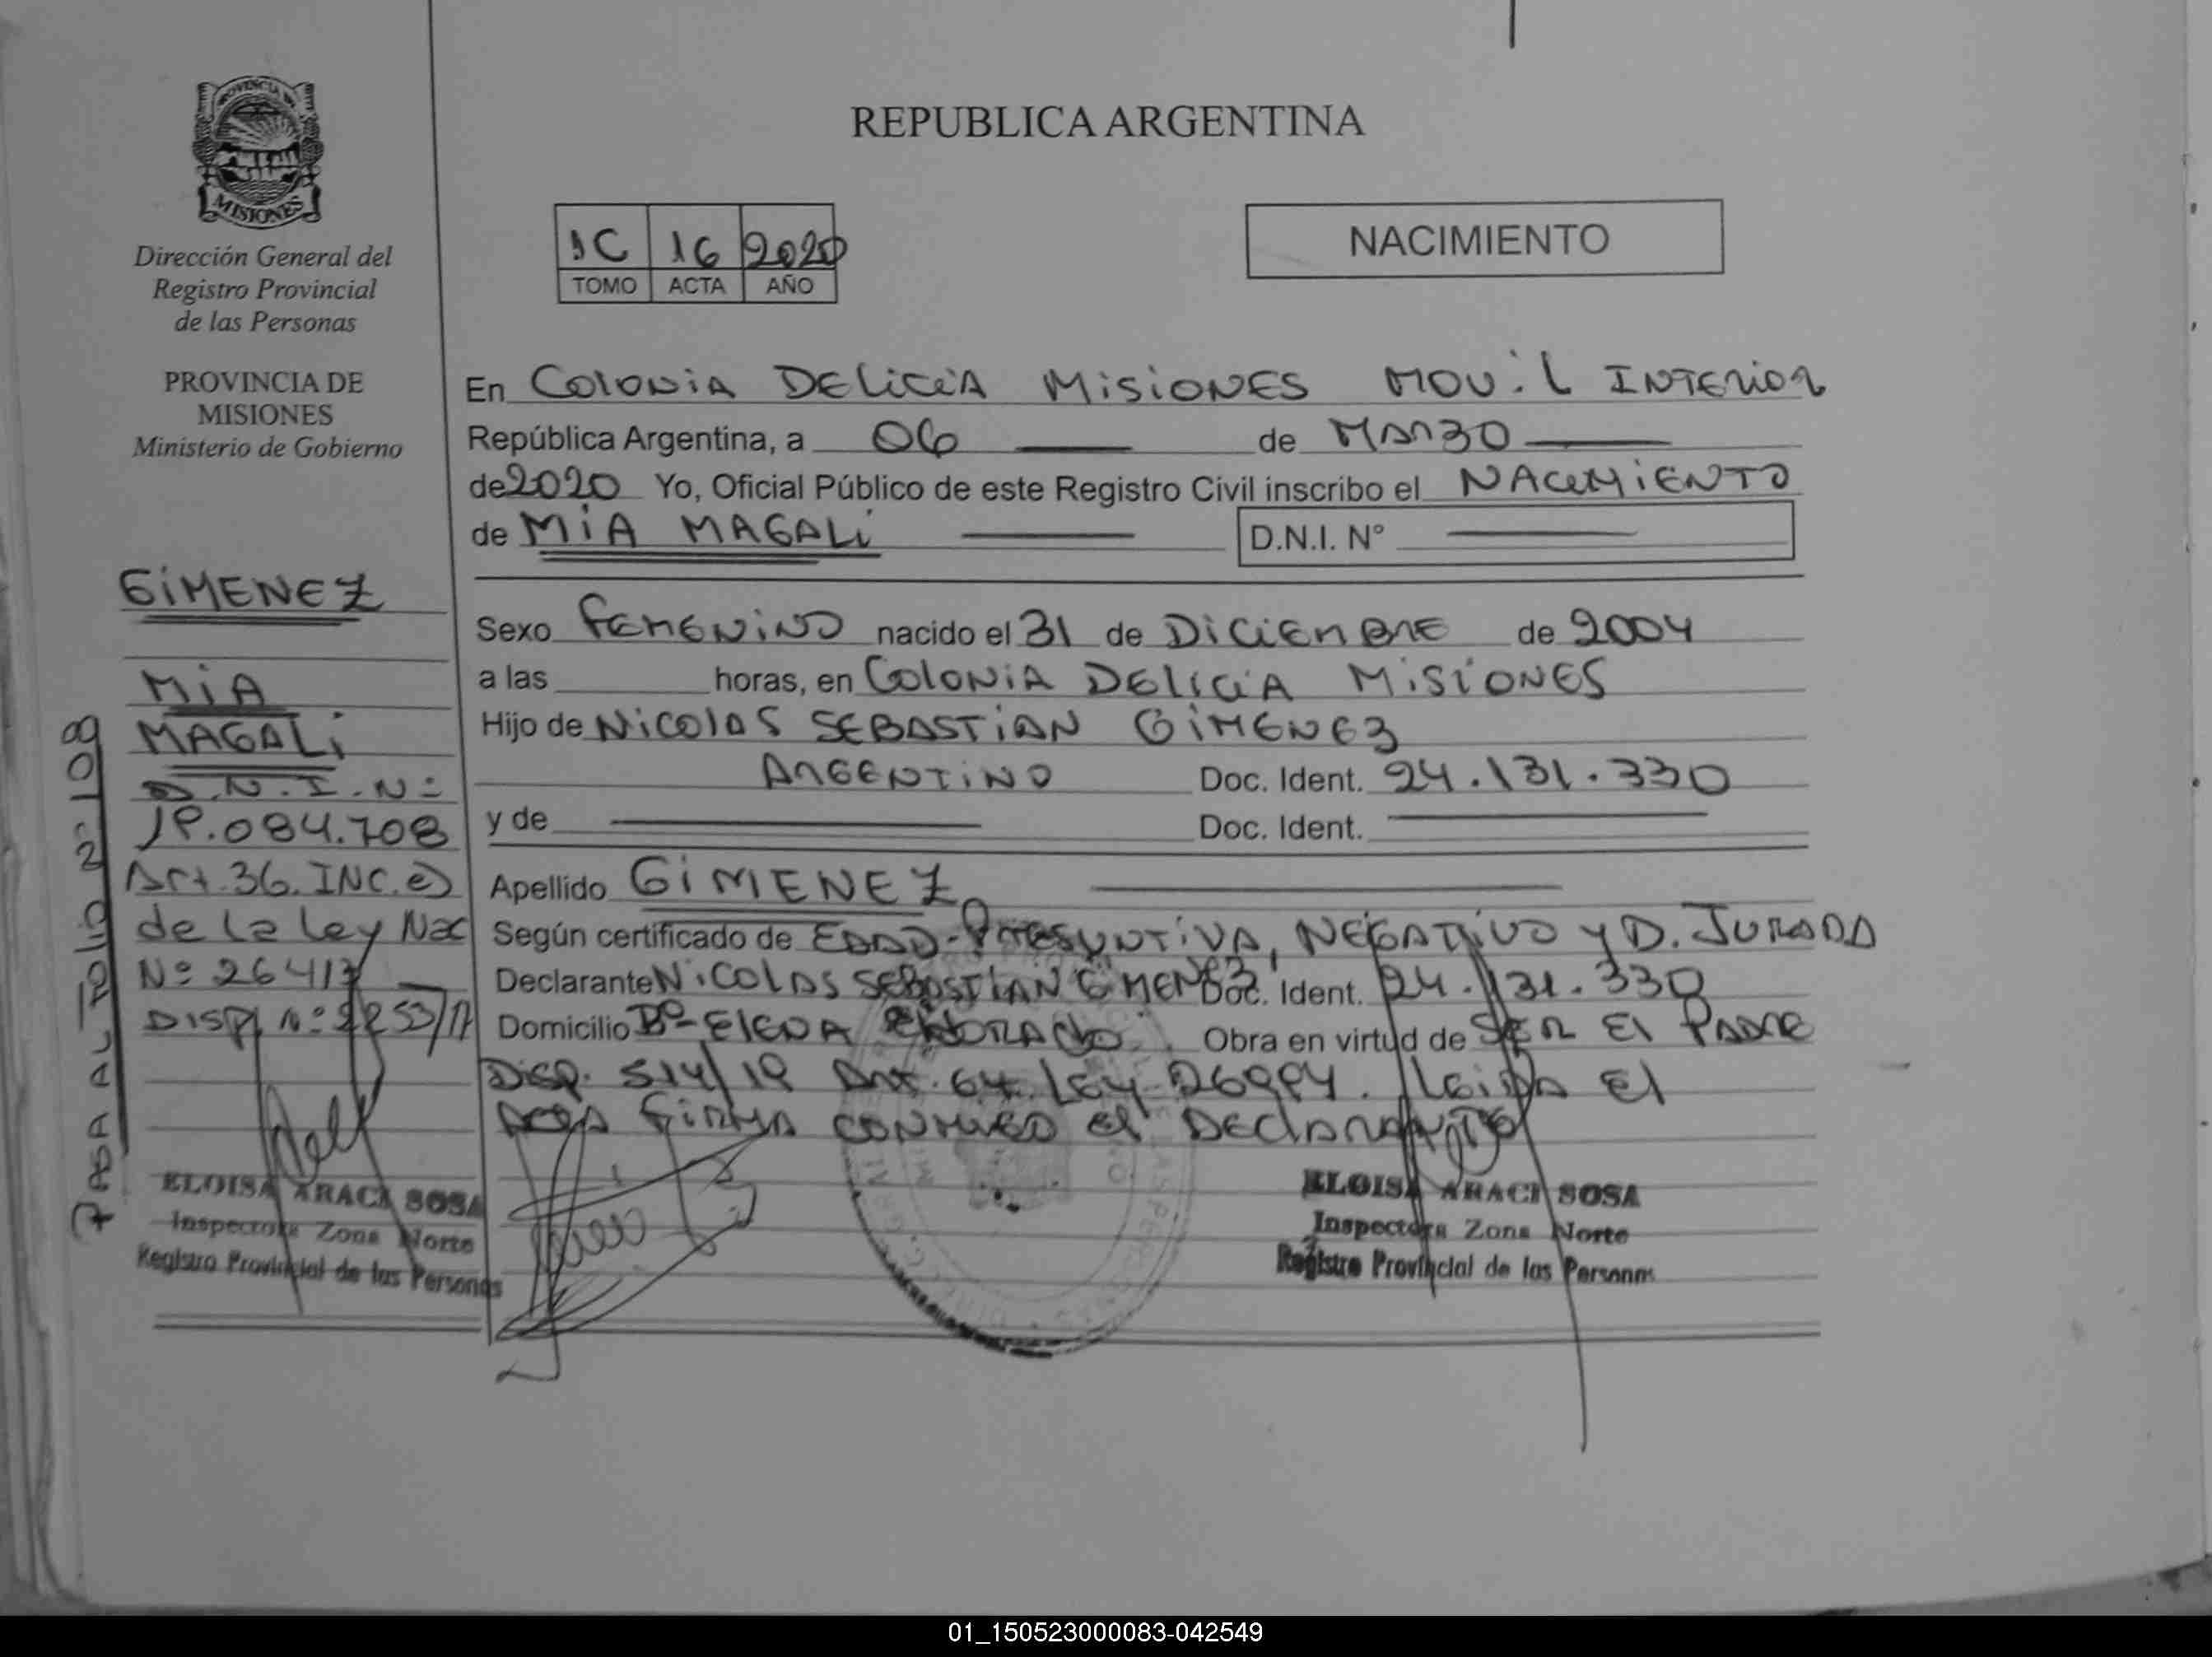 PROVINCIA DE
MISIONES
Dirección General del
Registro Provincial
de las Personas
PROVINCIA DE
MISIONES
Ministerio de Gobierno
GiMENEZ
MiA
MAGALi
D.N.I.Nº
Art.36.INC.e)
de la Ley Nac
Nº 26413
DISP. Nº
PASA AL FOLIO Nº 108
ELOISA ARACI SOSA
Inspectora Zona Norte
Registro Provincial de las Personas
REPUBLICA ARGENTINA
1C 16 2020
TOMO ACTA AÑO
NACIMIENTO
En COLONiA DELiCiA MiSiONES MOViL INTERiOR
República Argentina, a 06 de MARZO
de 2020 Yo, Oficial Público de este Registro Civil inscribo el NACiMiENTO
de MiA MAGALi D.N.I. Nº
Sexo FEMENiNO nacido el 31 de DiCiEMBRE de 2004
a las horas, en COLONiA DELiCiA MiSiONES
Hijo de NiCOLAS SEBASTiAN GiMENEZ
ARGENTiNO Doc. Ident. 24.131.330
y de Doc. Ident.
Apellido GiMENEZ
Según certificado de EDAD-PRESUNTiVA, NEGATiVO Y D. JURADA
Declarante NiCOLAS SEBASTiAN GiMENEZ Doc. Ident. 24.131.330
Domicilio Bº ELENA ELDORADO. Obra en virtud de SER El PADRE
DiSP. 514/19 Art. 64. LEY 26994. LeiDA El
ACTA FiRMA CONMiGO El DEClARANTE
ELOISA ARACI SOSA
Inspectora Zona Norte
Registro Provincial de las Personas
01_150523000083-042549